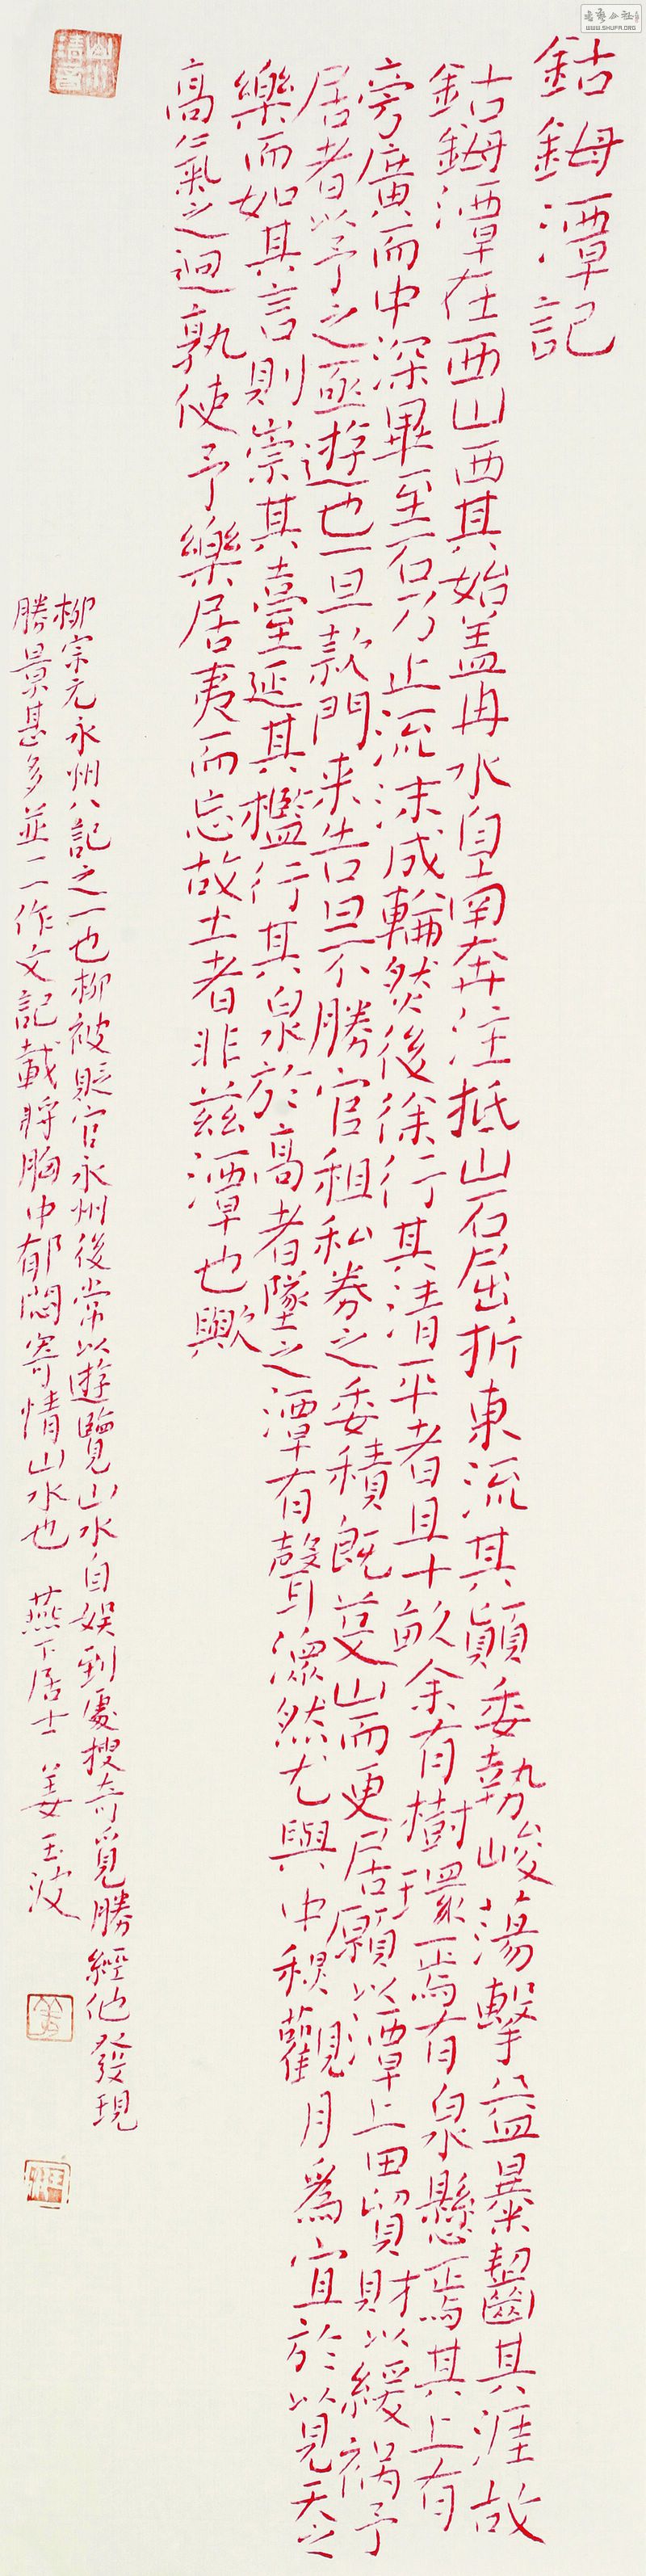 鈷鉧潭記
鈷鉧潭在西山西其始盖冉水自南奔注抵山石屈折東流其顛委勢峻蕩擊益暴齧其涯故
旁廣而中深畢至石乃止流沫成輪然後徐行其清平者且十畝余有樹環焉有泉懸焉其上有
居者以予之亟遊也一旦款門来告曰不勝官租私券之委積既芟山而更居願以潭上田貿財以緩禍予
樂而如其言則崇其臺延其檻行其泉於高者墜之潭有聲潀然尤與中秋觀月爲宜於以見天之
高氣之迥孰使予樂居夷而忘故土者非兹潭也歟
柳宗元永州八記之一也柳被貶官永州後常以遊覽山水自娱到處搜奇覓勝經他發現
勝景甚多並一一作文記載將胸中郁悶寄情山水也 燕下居士 姜玉波
WWW.SHUFA.ORG